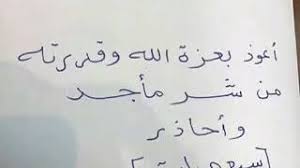 أعوذ بعزة الله وقدرته
من شر ما أجد
وأحاذر